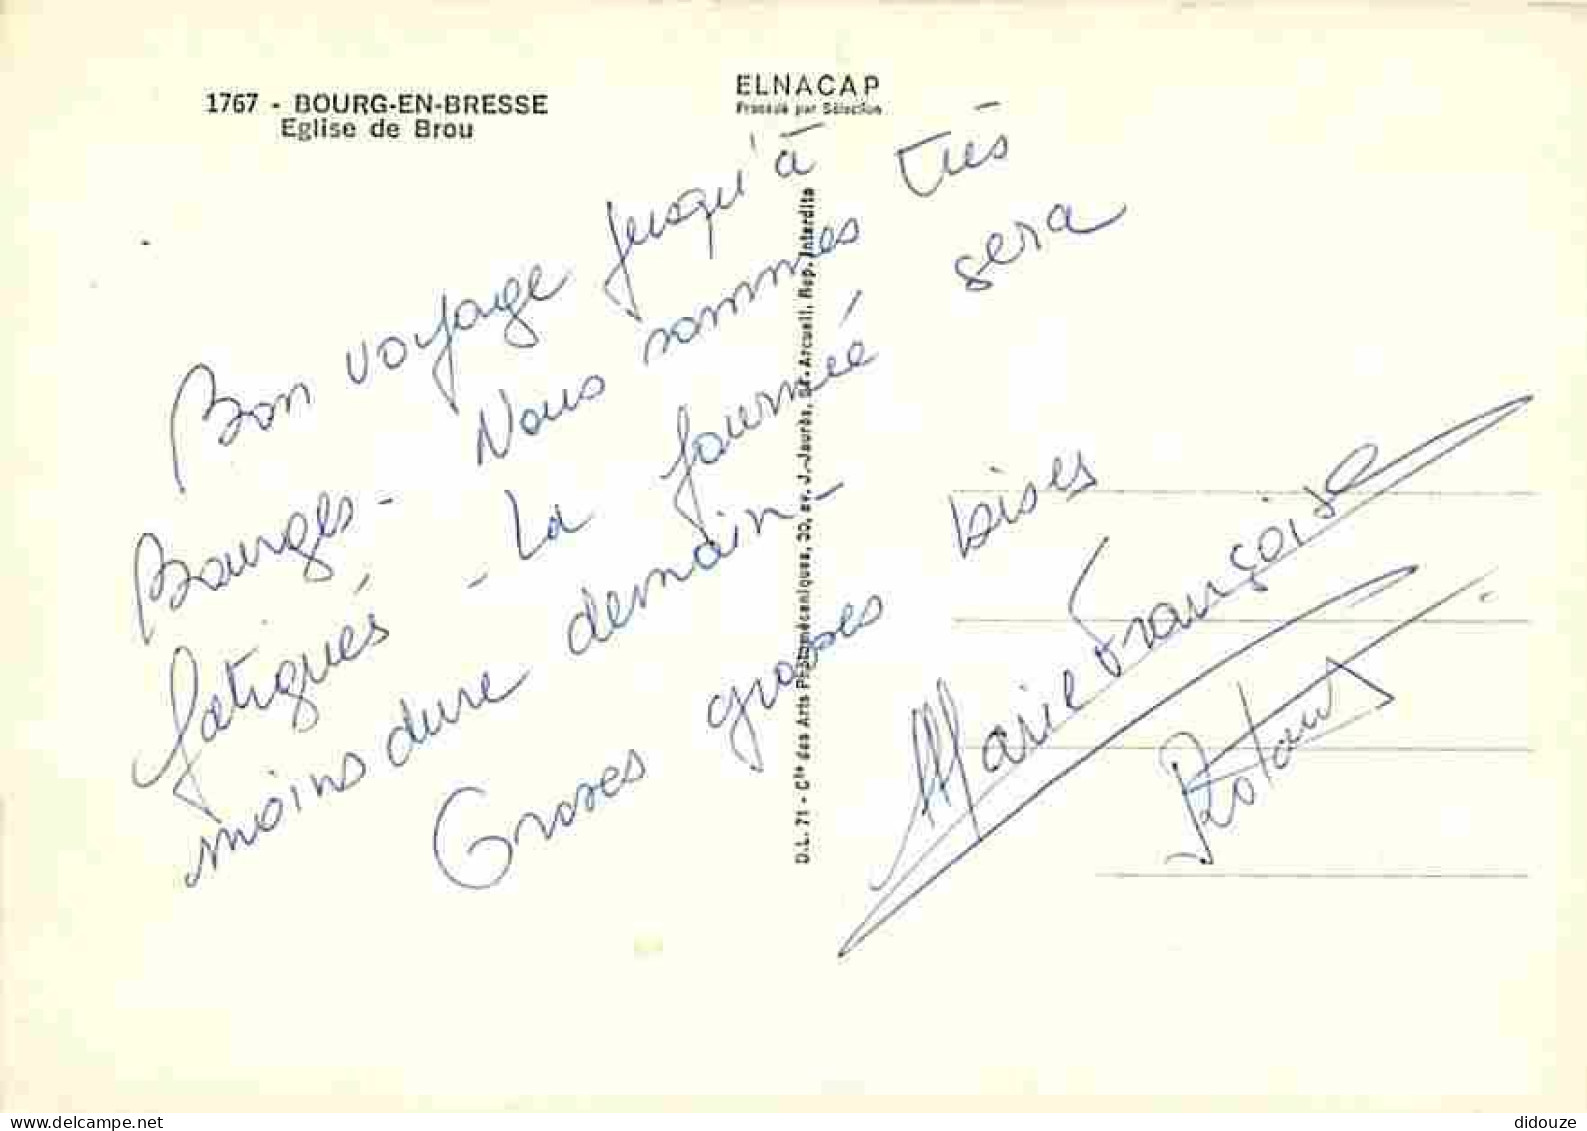 1767 - BOURG-EN-BRESSE
Eglise de Brou
ELNACAP
Procédé par Sélection
Bon voyage jusqu'à
Bourges - Nous sommes très
fatigués - La journée sera
moins dure demain -
Grosses grosses bises
Marie Françoise
D.L. 71 - Cie des Arts Photomécaniques, 30, av. J.-Jaurès, St-Arcueil, Rep. Interdite
www.delcampe.net
didouze